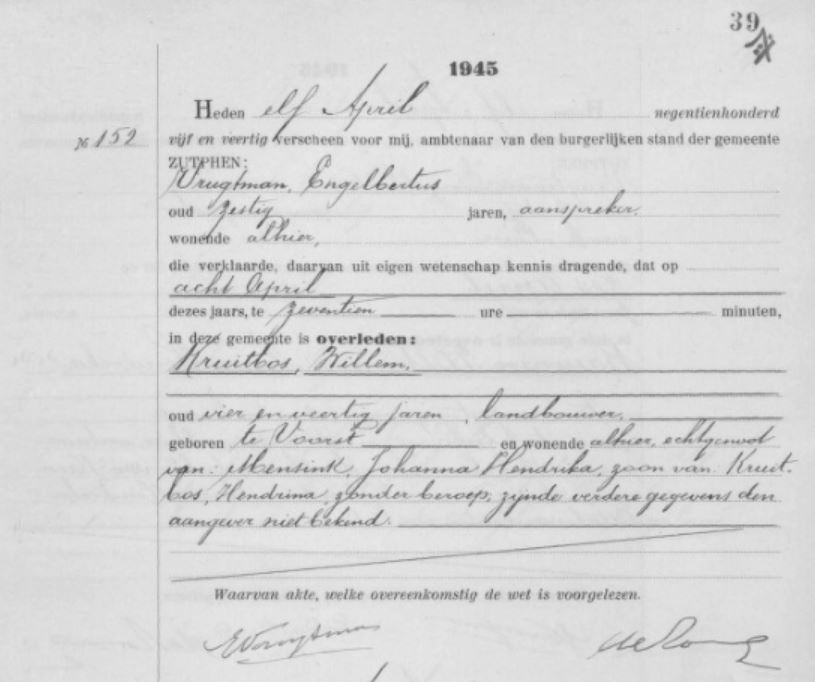 39
1945
Heden elf April negentienhonderd
№ 152 vijf en veertig verscheen voor mij, ambtenaar van den burgerlijken stand der gemeente
ZUTPHEN:
Vrugtman, Engelbertus
oud zestig jaren, aanspreker.
wonende alhier,
die verklaarde, daarvan uit eigen wetenschap kennis dragende, dat op
acht April
dezes jaars, te zeventien ure minuten,
in deze gemeente is overleden:
Kruitbos, Willem,
oud vier en veertig jaren, landbouwer,
geboren te Voorst en wonende alhier, echtgenoot
van: Mensink, Johanna Hendrika, zoon van: Kruit-
bos, Hendrina, zonder beroep, zijnde verdere gegevens den
aangever niet bekend.
Waarvan akte, welke overeenkomstig de wet is voorgelezen.
EVrugtman